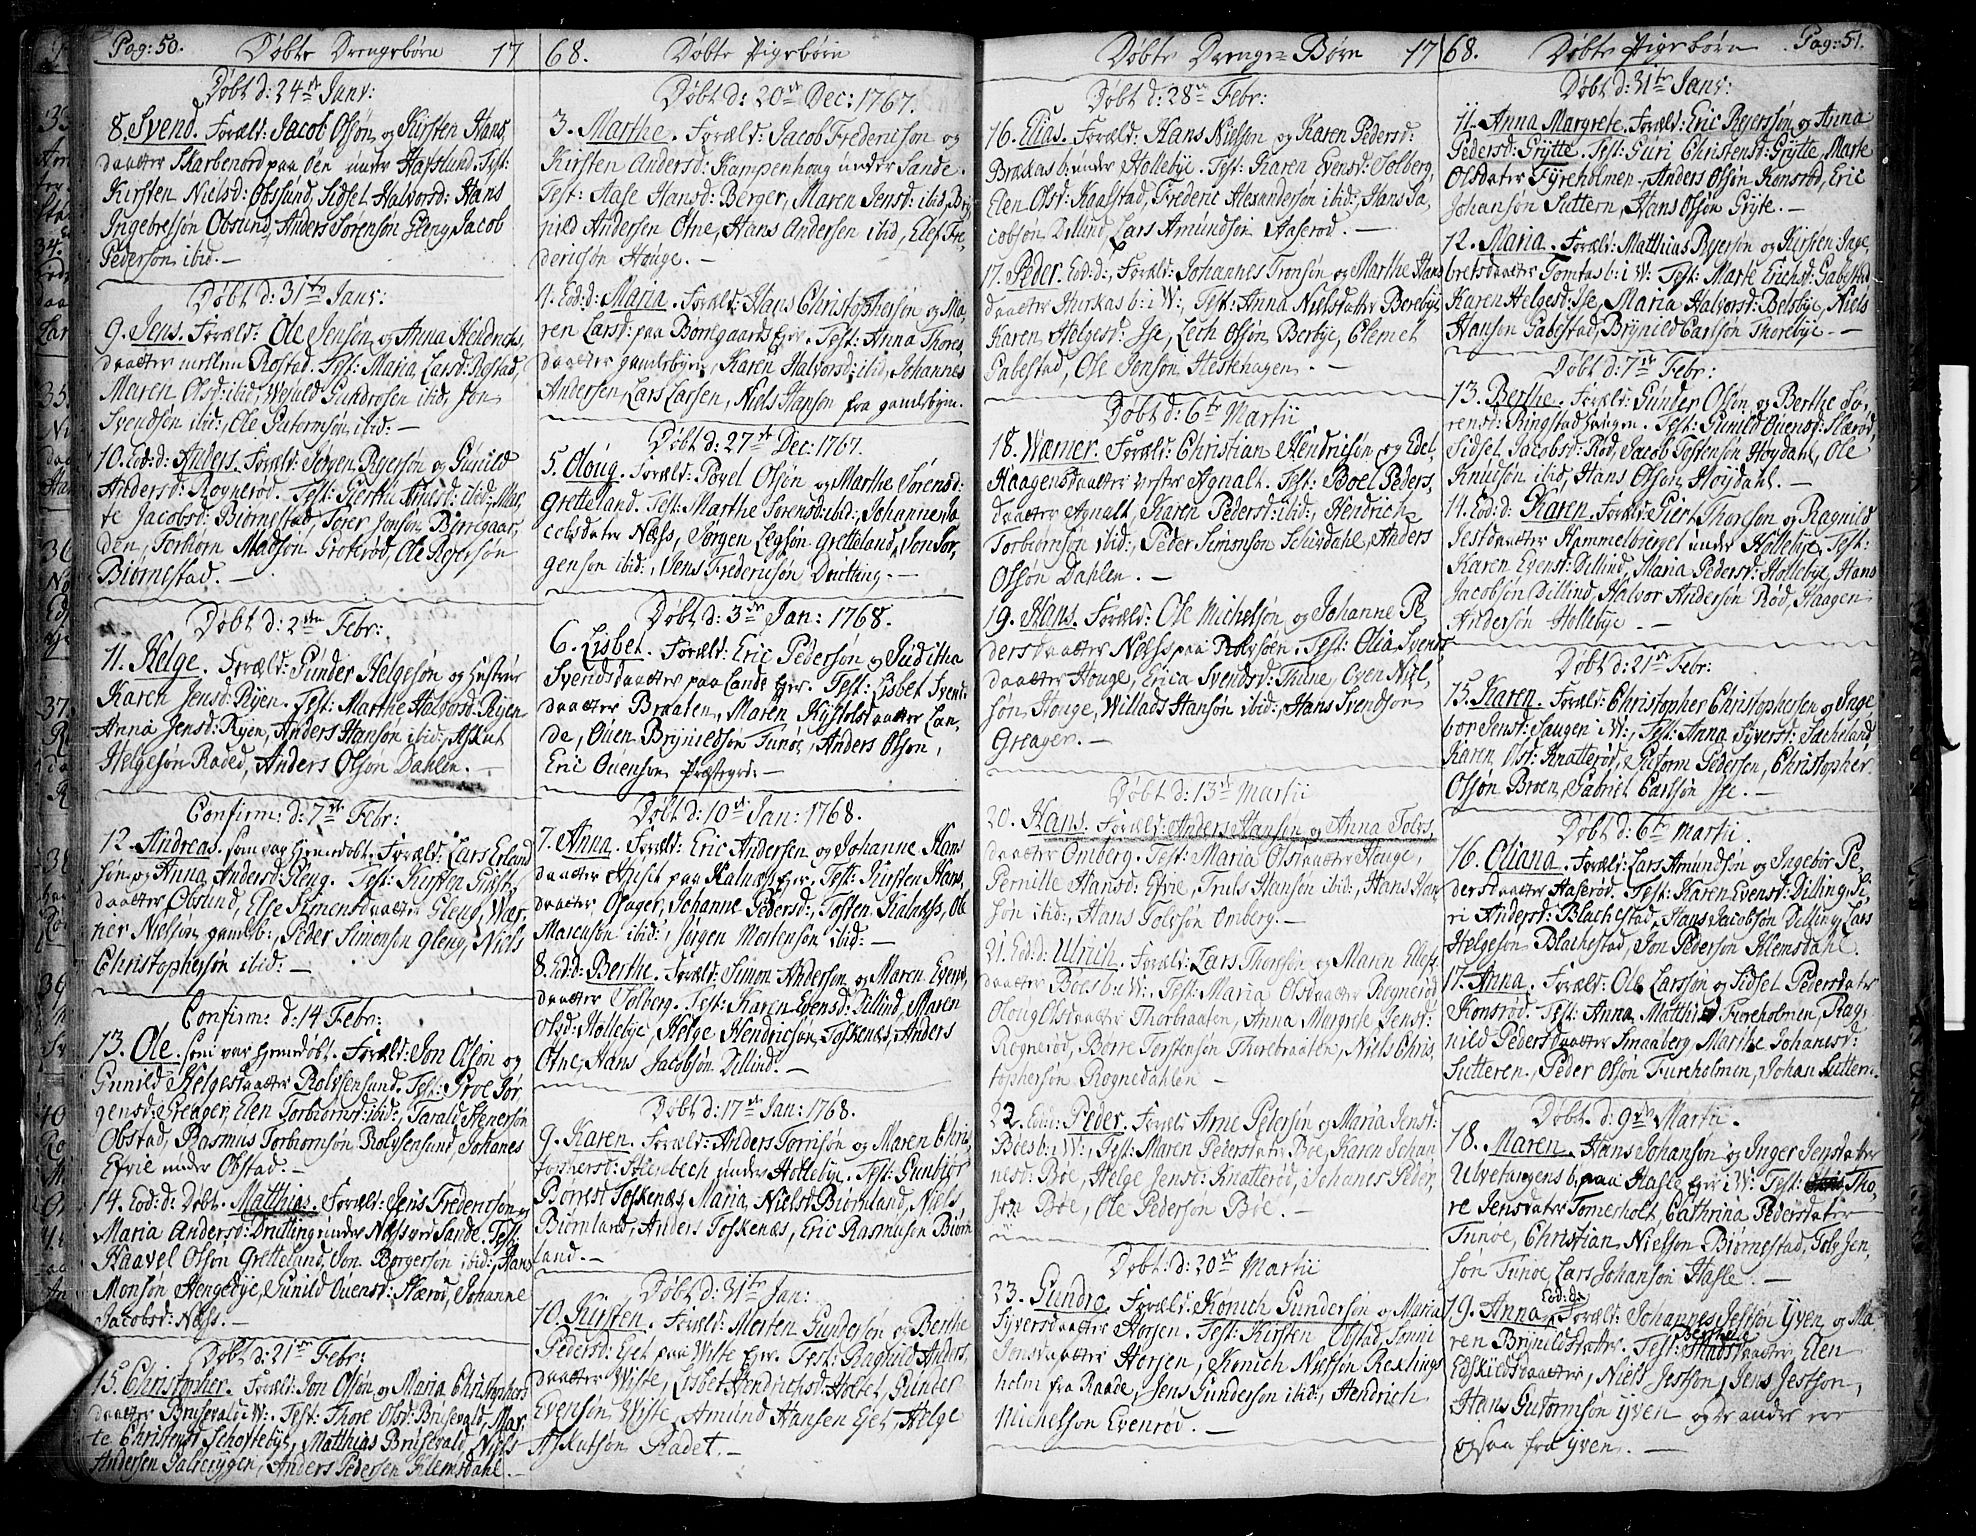 Pag: 50. Døbte Drengebørn 17
Døbt d: 24de Janv:
8. Svend. Foræld: Jacob Olsøn og Kirsten Hans
daatter Skarbenord paa Øen under Hafslund. Test:
Kirsten Nielsd: Obsund, Sidsel Halvorsd: Hans
Ingebretsøn Obsund, Anders Sørensøn Gleng, Jacob
Pederson ibid. —
Døbt d: 31te Janv:
9. Jens. Foræld: Ole Jensøn og Anna Hendrichs
daatter mellem Rostad. Test: Maria Larsd: Rostad,
Maren Olsd: ibid, Gundrosen ibid, Jon
Svendsøn ibid:, Ole Gutormsøn ibid: —
10. Eod: d: Anders. Foræld: Jørgen Ryersøn og Gunild
Andersd: Rognerød. Test: Giertru Arnesd: ibid: Mar,
te Jacobsd: Biørnestad, Torer Jonsøn Bierregaar,
den, Torbiorn Madsøn Grokerød, Ole Borgersøn
Biørnestad. —
Døbt d: 2den Febr:
11. Helge. Foræld: Gunder Helgesøn og Hustrue
Karen Jensd: Ryen. Test: Marthe Halvorsd: Ryen
Anna Jensd: Ryen, Anders Hanson ibid:, Askut
Helgesøn Raded, Anders Olson Dahlen. —
Confirm: d: 7de Febr:
12. Andreas. som var hjemdøbt. Foræld: Lars Erland
søn og Anna Andersd: Gleng. Test: Kirsten Nielsd,
daatter Obsund, Else Simensdaatter Gleng, Wær,
ner Nielsøn gamleb:, Peder Simonsøn Gleng, Niels
Christophersøn ibid: —
Confirm: d: 14 Febr:
13. Ole. som var hjemdøbt. Foræld: Jon Olsøn og
Gunild Helgesdaatter Rolvsensund. Test: Proe Jor,
gensd: Greager, Elen Torbiornsd: ibid:, Tarald Stenersøn
Obstad, Rasmus Torbiornsøn Rolvsensund, Johanes
Efvie under Obstad. —
14. Eod: d: Døbt. Matthias. Foræld: Jens Fredericsøn og
Maria Andersd: Dratting under Næss ved Sande. Test:
Haavel Olsøn Gretteland, Jon Borgersøn ibid:, Hans
Monsøn Hengebye, Gunild Ouensd: Skærød, Johanne
Jacobsd: Næss. —
Døbt d: 21de Febr:
15. Christopher. Foræld: Jon Olsøn og Maria Christophers
daatter Brusevald i W:. Test: Thore Olsd: Brusevald, Mar,
te Christensd Schoftebye, Matthias Brusevald, Niels
Andersen Galterygen, Anders Pedersen Klemsdahl. —
68. Døbte Pigebørn
Døbt d: 20de Dec: 1767.
3. Marthe. Foræld: Jacob Fredericson og
Kirsten Andersd: Kampenhaug under Sande.
Test: Aase Hansd: Berger, Maren Jensd: ibid, Bry
nild Andersen Otne, Hans Andersen ibid, Elef Fre
dericsøn Houge. —
4. Eod: d: Maria. Foræld: Hans Christophersøn og Ma,
ren Larsd: paa Borregaards Eyer. Test: Anna Thores,
daatter gamlebyen, Karen Halvorsd: ibid, Johannes
Andersen, Lars Larsen, Niels Hanson fra gamlebyen.
Døbt d: 27de Dec: 1767.
5. Oloug. Foræld: Povel Olsøn og Marthe Sørensd:
Gretteland. Test: Marthe Sorensd: ibid:, Johanne Ja
cobsdater Næss, Jørgen Legsøn Gretteland, Jon Jor,
gensøn ibid:, Jens Fredericsøn Dratting. —
Døbt d: 3de Jan: 1768.
6. Lisbet. Foræld: Eric Pedersøn og Juditha
Svendsdaatter paa Lande Eyer. Test: Lisbet Svend
daatter Braaten, Maren Kystolsdaatter Lan
de, Ouen Brynildsøn Tunøe, Anders Olsøn,
Eric Ouensøn Præstegrd: —
Døbt d: 10de Jan: 1768.
7. Anna. Foræld: Eric Andersen og Johanne Hans
daatter Huset paa Kalnæs Eyer. Test: Kirsten Hans,
daatter Olsager, Johanne Pedersd:, Tosten Kalnæss, Ole
Marensøn ibid:, Jørgen Mortensøn ibid: —
8. Eod: d: Berthe. Foræld: Simon Anderson og Maren Evens,
daatter Solberg. Test: Karen Evensd: Dillind, Maren
Olsd: Hollebye, Helge Hendricsøn Toskenes, Anders
Otne, Hans Jacobsøn Dillind. —
Døbt d: 17de Jan: 1768.
9. Karen. Foræld: Anders Torrisøn og Maren Chri,
stophersd: Alenbech under Hollebye. Test: Gunbiør
Borresd Toskenæs, Maria Nielsd Biørnland, Niels
Biørnland, Anders Toskenæs, Eric Rasmusen Biørn
land. —
Døbt d: 31te Jan:
10. Kirsten. Foræld: Morten Gundersøn og Berthe
Pedersd: Eiet paa Wiste Eyer. Test: Ragnild Anders,
daatter Wiste, Lisbet Hendrichsd: Holtet, Gunder
Evensøn Wiste, Amund Hansen Eiet, Helge
Askutsøn Radet. —
Døbte Drenge-Børn 17
Døbt d: 28de Febr:
16. Elias. Foræld: Hans Nielsøn og Karen Pedersd:
Brækas b: under Hollebye. Test: Karen Evensd: Solberg,
Elen Olsd: Kaalstad, Frederic Alexandersøn ibid:, Hans Ja,
cobson Dillind, Lars Amundsøn Aaserød. —
17. Peder. Eod: d:, Foræld: Johannes Tronsøn og Marthe Hans
daatter Hurkas b: i W:, Test: Anna Nielsdatter Berebye,
Karen Helgesd: Ise, Lech Olsøn Berbye, Clemet
Gabestad, Ole Jonsøn Hestehagen. —
Døbt d: 6te Martii
18. Warner. Foræld: Christian Hendricsøn og Edel
Haagensdaatter vester Agnalt. Test: Boel Peders,
daatter Agnalt, Karen Pedersd: ibid:, Hendrich
Torbiornson ibid:, Peder Simonson Schisdahl, Anders
Olsøn Dahlen. —
19. Hans. Foræld: Ole Michelsøn og Johanne P
dersdaatter Næss paa Rolvsøen. Test: Olia Svends
daatter Houge, Erica Svendsd: Thune, Even Niel,
søn Houge, Willads Hansøn ibid:, Hans Svendson
Greager. —
Døbt d: 13de Martii
20. Hans. Foræld: Anders Hansøn og Anna Tolvs,
daatter Omberg. Test: Maria Olsdaatter Houge,
Pernille Hansd: Efvie, Truls Hansøn ibid:, Hans Han
søn ibid:, Hans Tolvsøn Omberg. —
21. Eod: d: Ulrich. Foræld: Lars Thoresøn og Maren Elefs,
daatter Bøesb: i W:, Test: Maria Olsdaatter Rognerød
Oloug Olsdaatter Thorbraaten, Anna Margrete Jensd:
Rognerød, Borre Torstensøn Thorebraaten, Niels Chris,
topherson Rognedahlen —
22. Eodm: Peder. Foræl: Arne Petersøn og Maria Jensd:
Bøes b: i W:, Test: Maren Pedersdater Bøe, Karen Johan
nesd: Bøe, Helge Jensd: Knatterød, Johanes Peder,
søn Bøe, Ole Pederson Bøe. —
Døbt d: 20de Martii
23. Gundro. Foræld: Konich Gundersøn og Maria
Syversdaatter Horsen. Test: Kirsten Obstad, Jonni
Jonsdaatter Horsen, Konich Nielsøn Rexlings
holm fra Raade, Jens Gunderson ibid:, Hendrich
Michelsøn Evenrød. —
68. Døbte Pigebørn Pag: 51.
Døbt d: 31te Janv:
11. Anna Margrete. Foræld: Eric Reyerssøn og Anna
Pedersd: Grytte. Test: Guri Christensd: Grytte, Marte
Olsdater Fyreholmen, Anders Olsøn Konsrød, Eric
Johansøn Suttern, Hans Olsøn Gryte. —
12. Maria. Foræld: Matthias Ryerson og Kirsten Inge,
bretsdaatter Tomtas b: i W: Test: Marte Erichsd: Gabestad
Karen Helgesd: Ise, Maria Halvorsd: Belsbye, Niels
Hansøn Gabestad, Brynild Carlsøn Thorebye. —
Døbt d: 7de Febr:
13. Berthe. Foræld: Gunder Olsøn og Berthe So,
rensd: Ringstadhaugen. Test: Gunild Ouensd: Skærød,
Sidsel Jacobsd: Rød, Jacob Tostensøn Høydahl, Ole
Knudsøn ibid, Hans Olsøn Høydahl. —
14. Eod: d: Karen. Foræld: Giert Thoresøn og Ragnild
Jensdaatter Hammelberget under Hollebye, Test:
Karen Evensd: Dillind, Maria Pedersd: Hollebye, Hans
Jacobsøn Dillind, Halvor Andersøn Rød, Haagen
Andersøn Hollebye. —
Døbt d: 21de Febr:
15. Karen. Foræld: Christopher Christophersen og Inge
bor Jensd: Haugen i W:, Test: Anna Syversd: Sacheland
Karen Olsd: Knatterød, Gutorm Pedersen, Christopher
Olsøn Broen, Gabriel Carlsøn Ise. —
Døbt d: 6te Martii.
16. Oliana. Foræld: Lars Amundsøn og Ingebør Pe,
dersdaatter Aaserød. Test: Karen Evensd: Dilling, Si
ri Andersd: Blachestad, Hans Jacobsøn Dilling, Lars
Helgeson Blachestad, Jon Pederson Klemsdahl.
17. Anna. Foræld: Ole Larsøn og Sidsel Pedersdater
Konsrød. Test: Anna Matthisd Fureholmen, Rag,
nild Pedersdaatter Smaaberg, Marthe Johanesd:
Sutteren, Peder Olsøn Fureholmen, Johan Suttern.
Døbt d: 9de Martii:
18. Maren. Hans Johansøn og Inger Jensdater
Ulvetangens b. paa Hasle Eyer i W: Test: Tho,
re Jensdater Tomerholt, Cathrina Pedersdater
Tunoe, Christian Nielsøn Biørnestad, Tolv Jen,
søn Tunoe, Lars Johansøn Hasle. —
19. Anna Eod: d: Foræld: Johannes Jessøn Yven og Ma
ren Brynildsdatter. Test: daatter, Elen
Eskildsdaatter, Niels Jessøn, Jens Jessøn,
Hans Gutormsøn Yven og de andre ere
ogsaa fra Yven. —